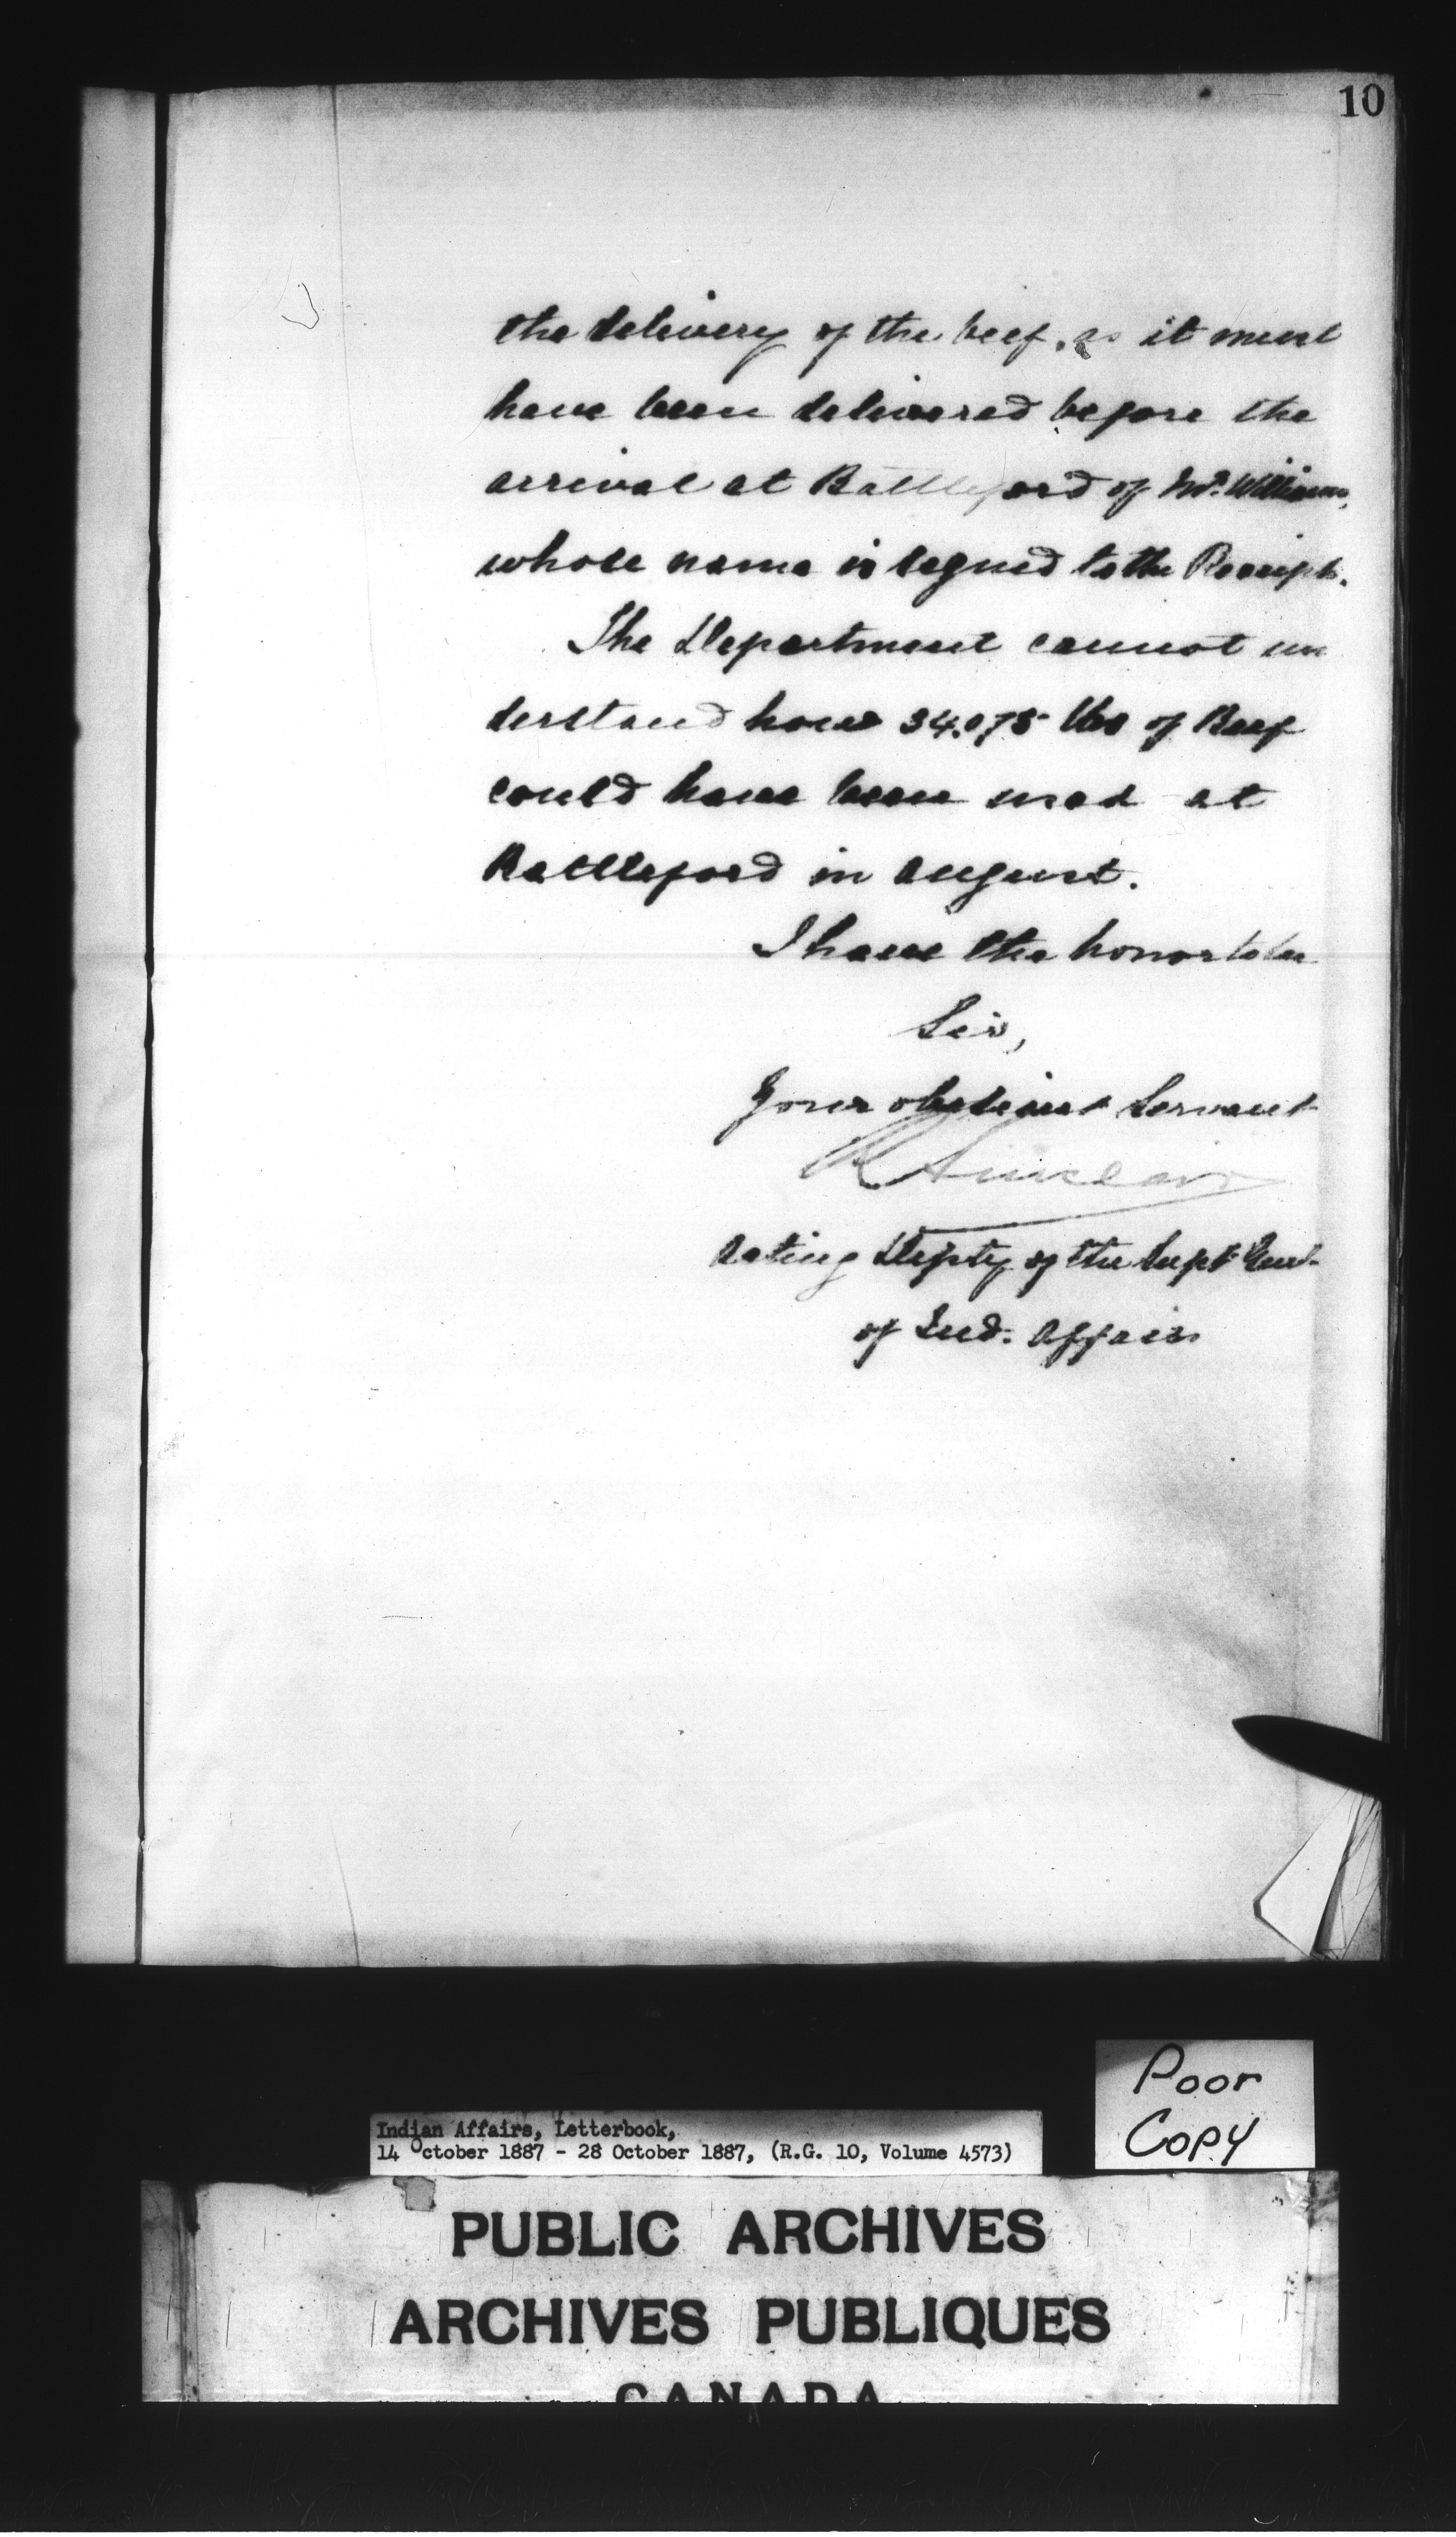 10
the delivery of the beef, as it must
have been delivered before the
arrival at Battleford of Mr. Williams,
whose name is signed to the Receipt.
The Department cannot un
derstand how 34.075 lbs of Beef
could have been used at
Battleford in August.
I have the honor to be
Sir,
Your obedient Servant
R Sinclair
Acting Depty of the Supt Genl.
of Ind. Affairs
Poor
Copy
Indian Affairs, Letterbook,
14 October 1887 - 28 October 1887, (R.G. 10, Volume 4573)
PUBLIC ARCHIVES
ARCHIVES PUBLIQUES
CANADA